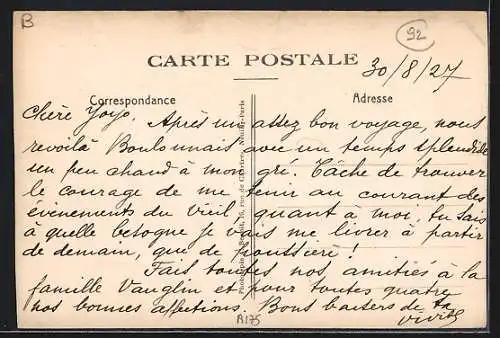 B
92
CARTE POSTALE
30/8/27
Correspondance
Adresse
Chère Yoyo. Après un assez bon voyage, nous
revoilà Boulonnais avec un temps splendide
un peu chaud à mon gré. Tâche de trouver
le courage de me tenir au courant des
évènements du vieil, quant à moi, tu sais
à quelle besogne je vais me livrer à partir
de demain, que de poussière !
Fais toutes nos amitiés à la
famille Vauglin et pour toutes quatre
nos bonnes affections. Bons baisers de ta
A175